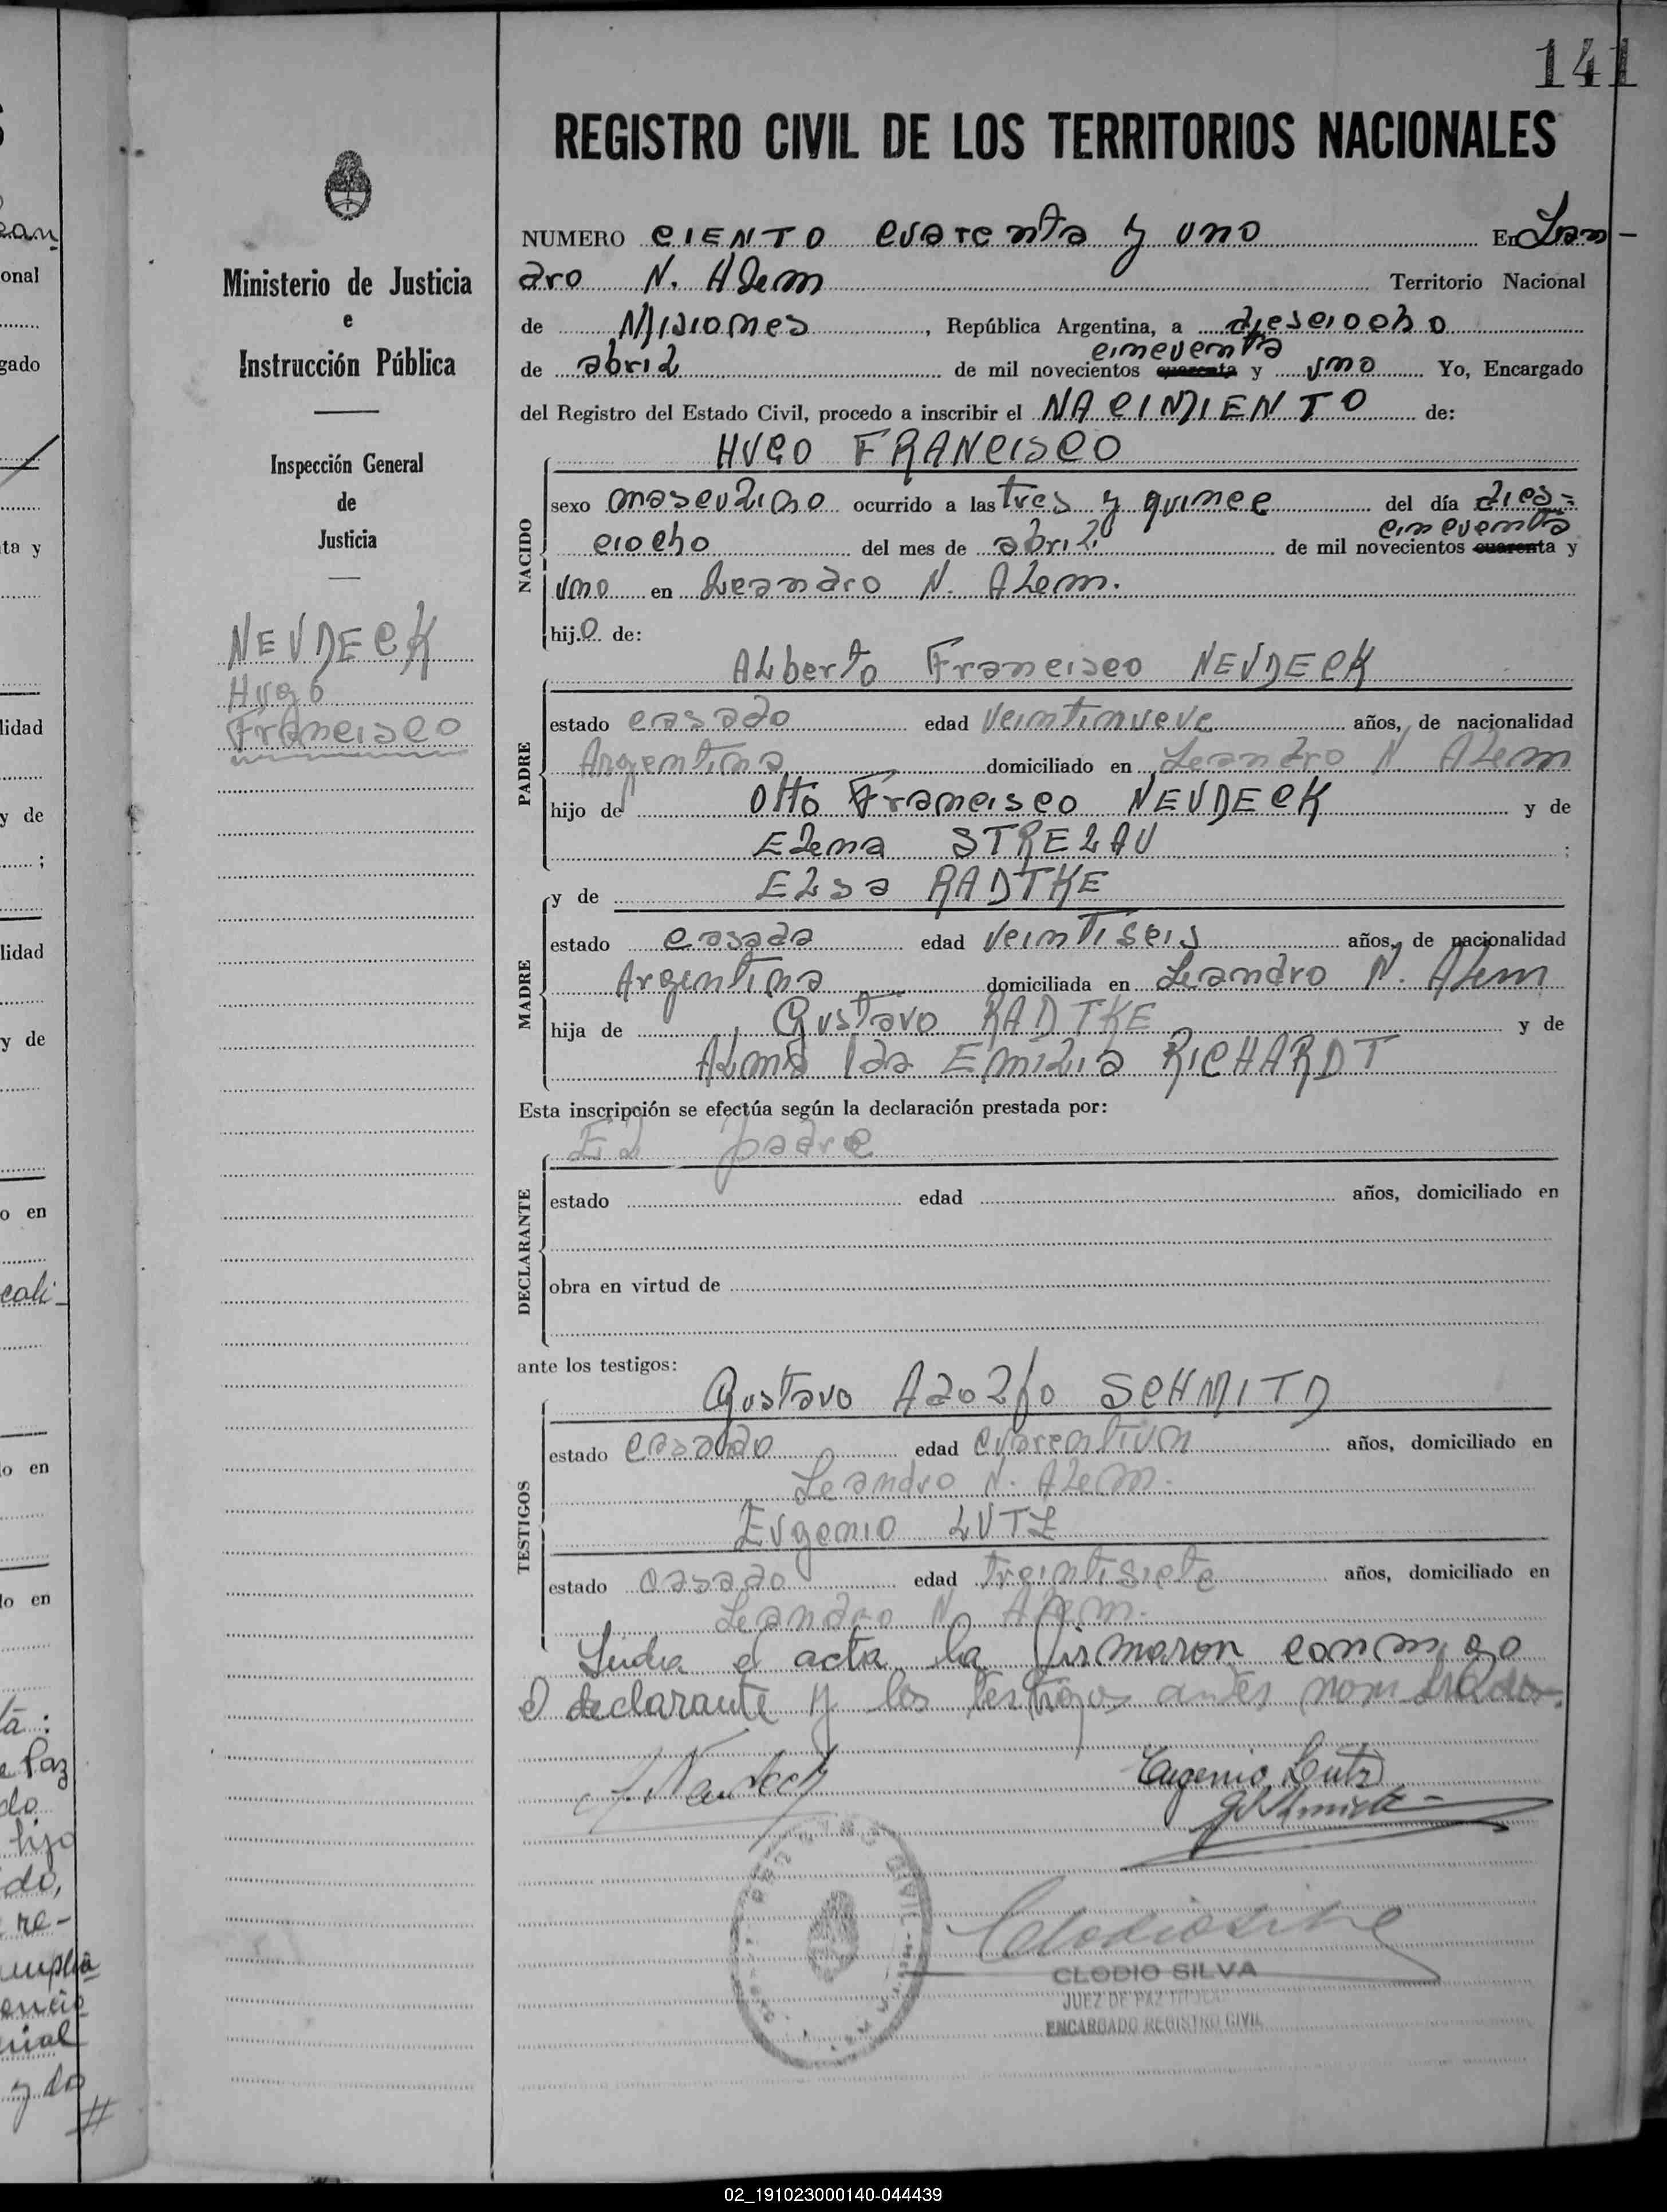 141
REGISTRO CIVIL DE LOS TERRITORIOS NACIONALES
NUMERO CIENTO cuarenta y uno En Lean-
dro N. Alem Territorio Nacional
de Misiones, República Argentina, a diesciocho
cincuenta
de abril de mil novecientos cuarenta y uno Yo, Encargado
del Registro del Estado Civil, procedo a inscribir el NACIMIENTO de:
Ministerio de Justicia
e
Instrucción Pública
Inspección General
de
Justicia
NEUDECK
Hugo
Francisco
NACIDO
HUGO FRANCISCO
sexo masculino ocurrido a las tres y quince del día dies=
cincuenta
ciocho del mes de abril de mil novecientos cuarenta y
uno en Leandro N. Alem.
hijo de:
PADRE
Alberto Francisco NEUDECK
estado casado edad veintinueve años, de nacionalidad
Argentina domiciliado en Leandro N Alem
hijo de Otto Francisco NEUDECK y de
Elena STRELAU ;
MADRE
y de Elsa RADTKE
estado casada edad veintiseis años, de nacionalidad
Argentina domiciliada en Leandro N. Alem
hija de Gustavo RADTKE y de
Alma Ida Emilia RICHARDT
Esta inscripción se efectúa según la declaración prestada por:
DECLARANTE
El padre
estado edad años, domiciliado en
obra en virtud de
ante los testigos:
TESTIGOS
Gustavo Adolfo SCHMITD
estado casado edad cuarentiun años, domiciliado en
Leandro N. Alem.
Eugenio LUTZ
estado casado edad treintisiete años, domiciliado en
Leandro N. Alem.
Leida el acta la firmaron conmigo
el declarante y los testigos antes nombrados.
Eugenio Lutz
CLODIO SILVA
JUEZ DE PAZ TITULAR
ENCARGADO REGISTRO CIVIL
02_191023000140-044439